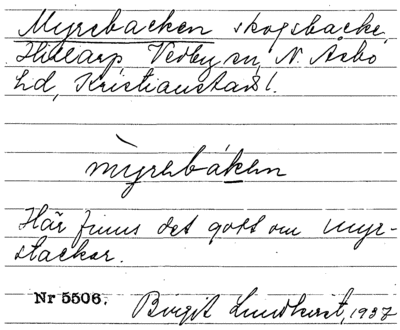 Myrebacken skogsbacke,
Hillarp Vedby sn, N. Åsbo
hd, Kristianstads l.
mỳrebáken
Här finns det gott om myr-
stackar.
Nr 5506. Birgit Lundkvist, 1937